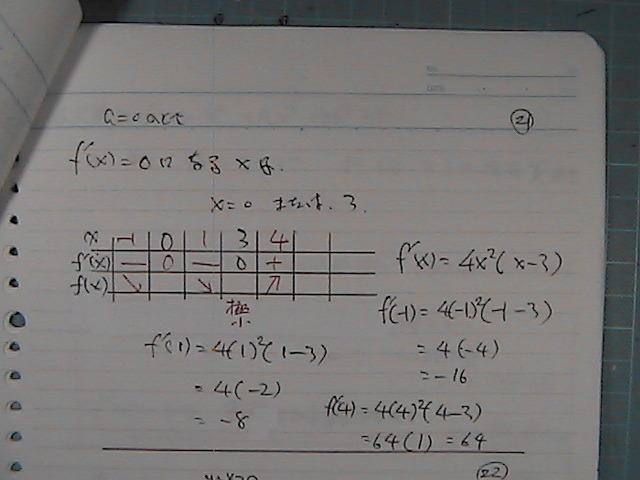 a=0 のとき
㉑
f'(x)=0になる x は.
x=0 または, 3.
x -1 0 1 3 4
f'(x) − 0 − 0 +
f(x) ↘ ↘ ↗
極小
f'(x) = 4x²(x-3)
f'(-1) = 4(-1)²(-1-3)
= 4(-4)
= -16
f'(1) = 4(1)²(1-3)
= 4(-2)
= -8
f'(4) = 4(4)²(4-3)
= 64(1) = 64
㉒